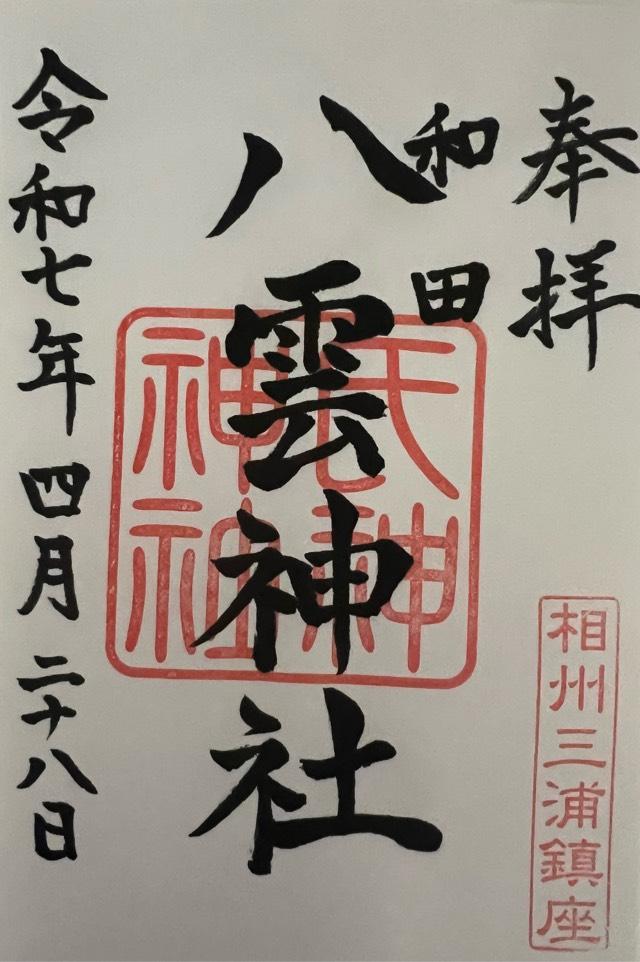 奉拝
和田
八雲神社
氏神神社
相州三浦鎮座
令和七年四月二十八日